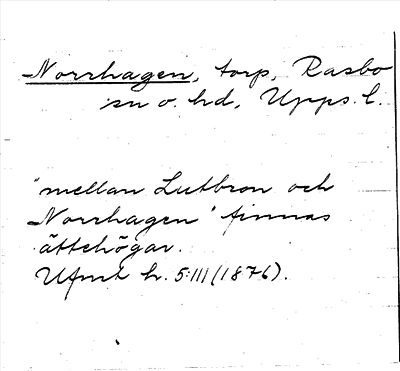 Norrhagen, torp, Rasbo
sn o. hd, Upps. l.
"mellan Lutbron och
Norrhagen" finnas
ättehögar.
Ufmt h. 5:III (1876).